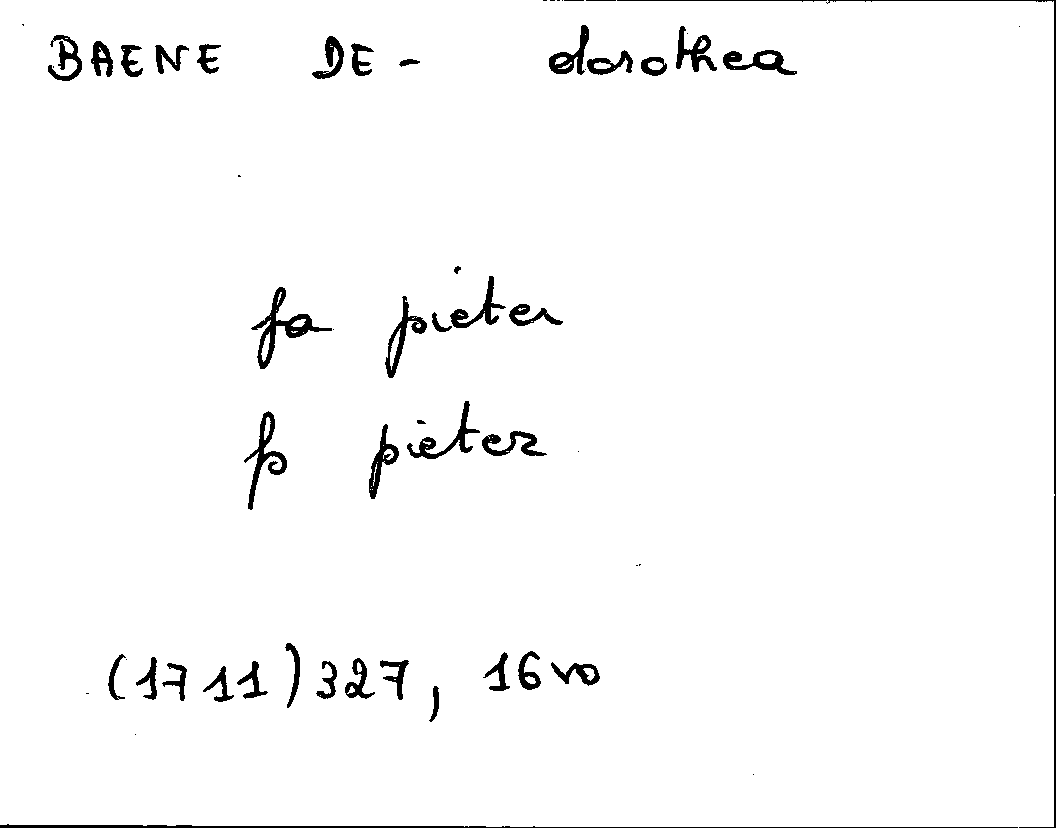 BAENE DE - dorothea
fa pieter
fs pieter
(1711) 327, 16vo